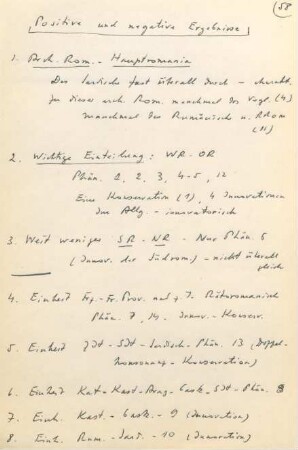 58
[Positive und negative Ergebnisse]
1. Arch. Rom. - Hauptromania
Das Sardische fast überall durch -
zu dieser arch. Rom. manchmal das Vegl. (4)
manchmal das Rumänische u.
(11)
2. Wichtige Einteilung: WR - OR
Phän. 1, 2, 3, 4-5, 12
Eine Konservation (1), 4 Innovationen
das Allg. - innovatorisch
3. Weit weniger SR - NR - Nur Phän. 6
(Innov. der Südrom) - nicht überall
gleich
4. Einheit Frz - Fr. Prov. auf + Rätoromanisch
Phän. 7, 14 - Innov. - Konserv.
5. Einheit - SIt - Sardisch - Phän. 13 (Doppel-
konsonanz - Konservation)
6. Einheit Kat - Kast - Arag - Gask - SIt - Phän. 8
7. Einh. Kast. - Gask. - 9 (Innovation)
8. Einh. Rum. - Sard. - 10 (Innovation)